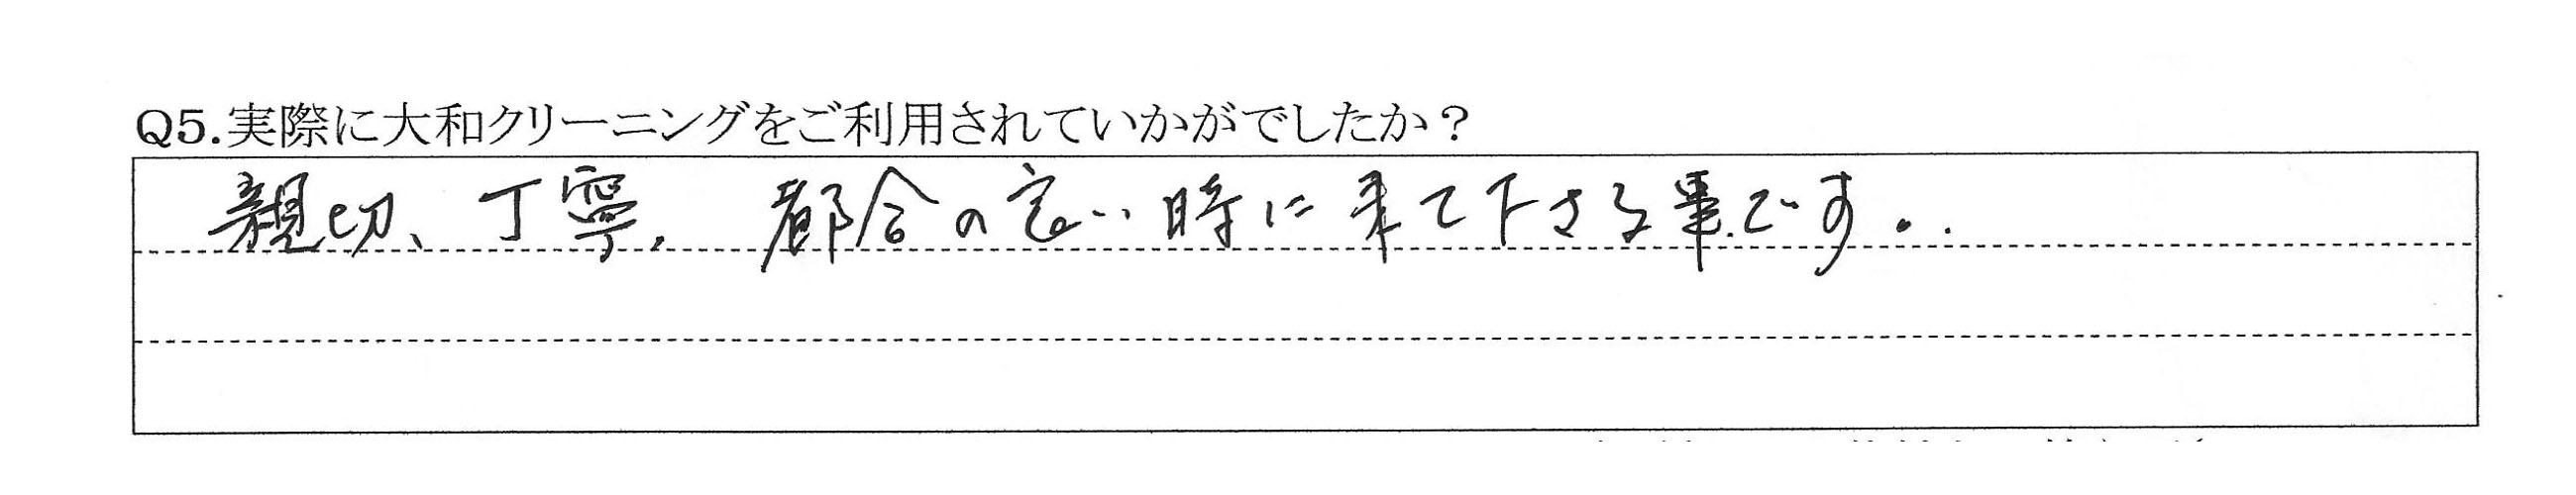 Q5.実際に大和クリーニングをご利用されていかがでしたか？
親切、丁寧、都合の良い時に来て下さる事です。